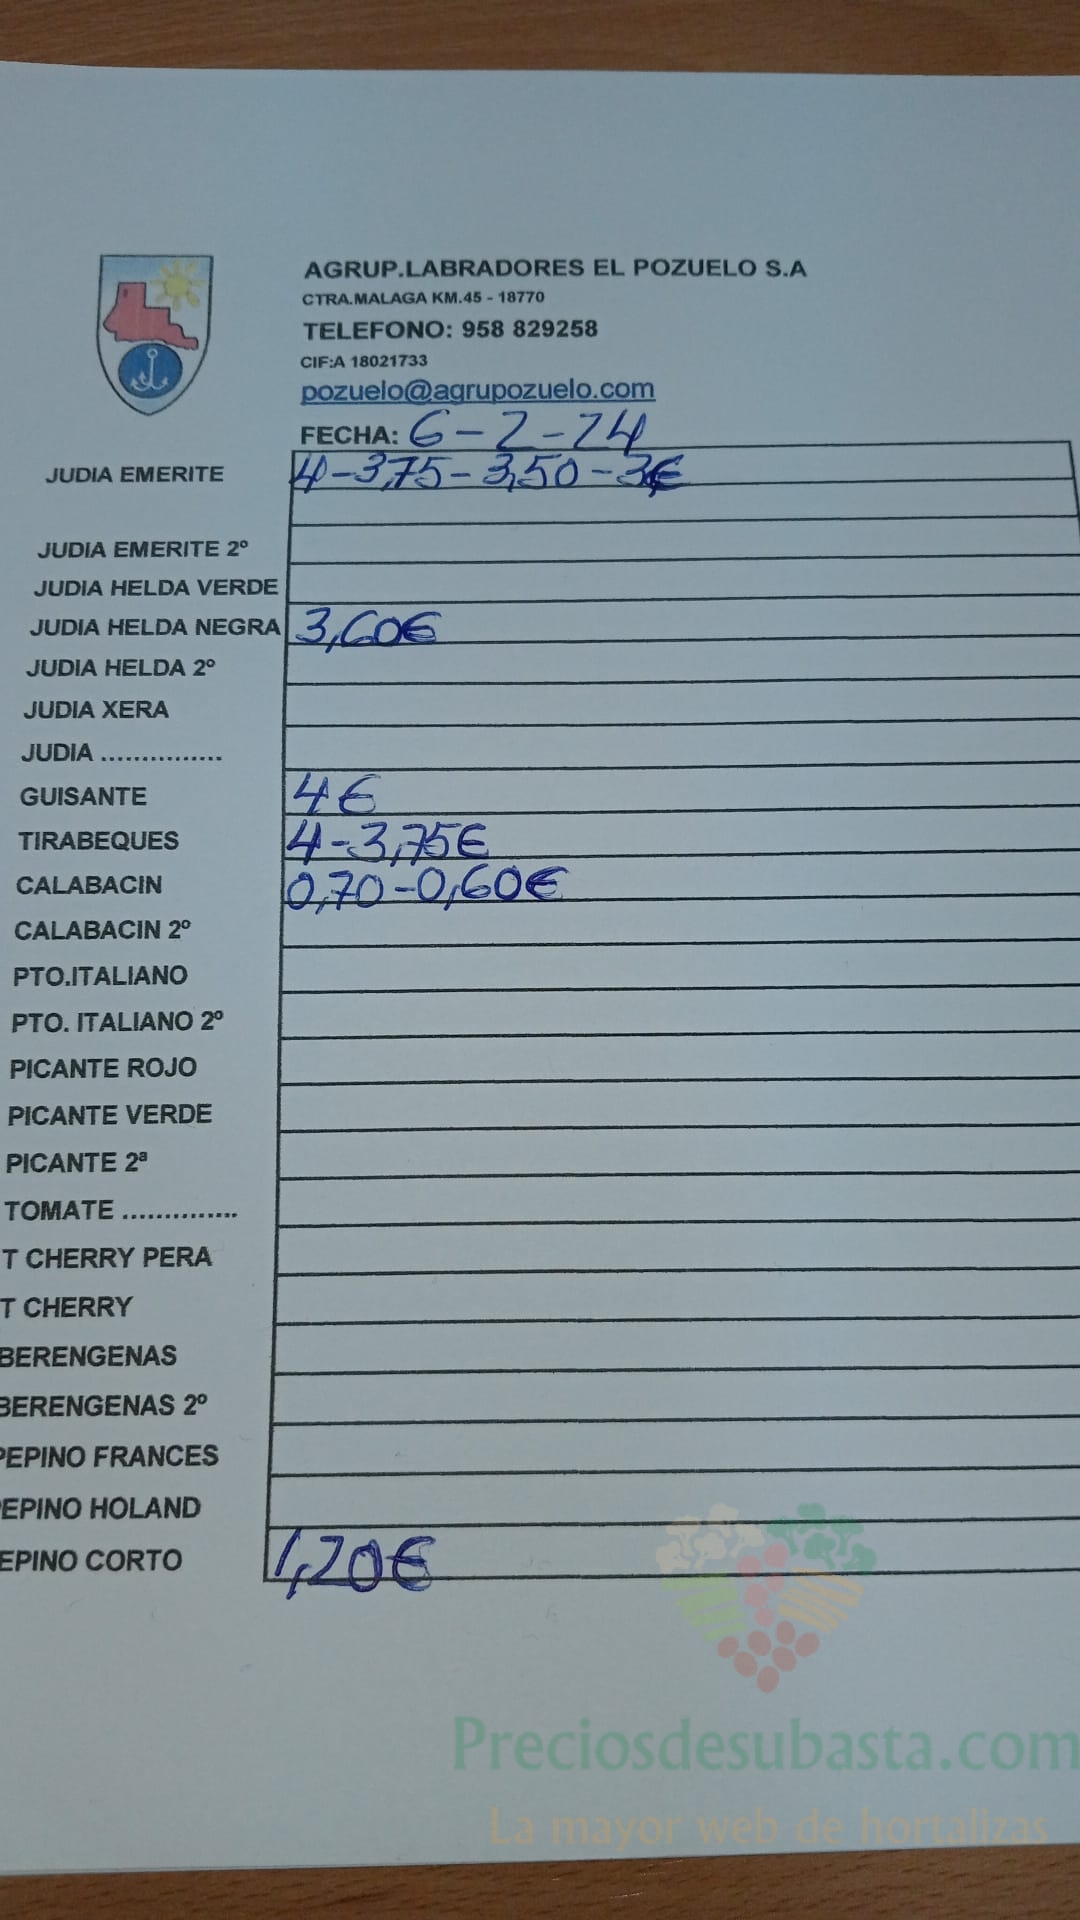 AGRUP.LABRADORES EL POZUELO S.A
CTRA.MALAGA KM.45 - 18770
TELEFONO: 958 829258
CIF:A 18021733
pozuelo@agrupozuelo.com
FECHA: 6-2-24
JUDIA EMERITE 4-3,75-3,50-3€
JUDIA EMERITE 2º
JUDIA HELDA VERDE
JUDIA HELDA NEGRA 3,60€
JUDIA HELDA 2º
JUDIA XERA
JUDIA ...............
GUISANTE 4€
TIRABEQUES 4-3,75€
CALABACIN 0,70-0,60€
CALABACIN 2º
PTO.ITALIANO
PTO. ITALIANO 2º
PICANTE ROJO
PICANTE VERDE
PICANTE 2ª
TOMATE ..............
T CHERRY PERA
T CHERRY
BERENGENAS
BERENGENAS 2º
PEPINO FRANCES
EPINO HOLAND
EPINO CORTO 1,20€
Preciosdesubasta.com
La mayor web de hortalizas